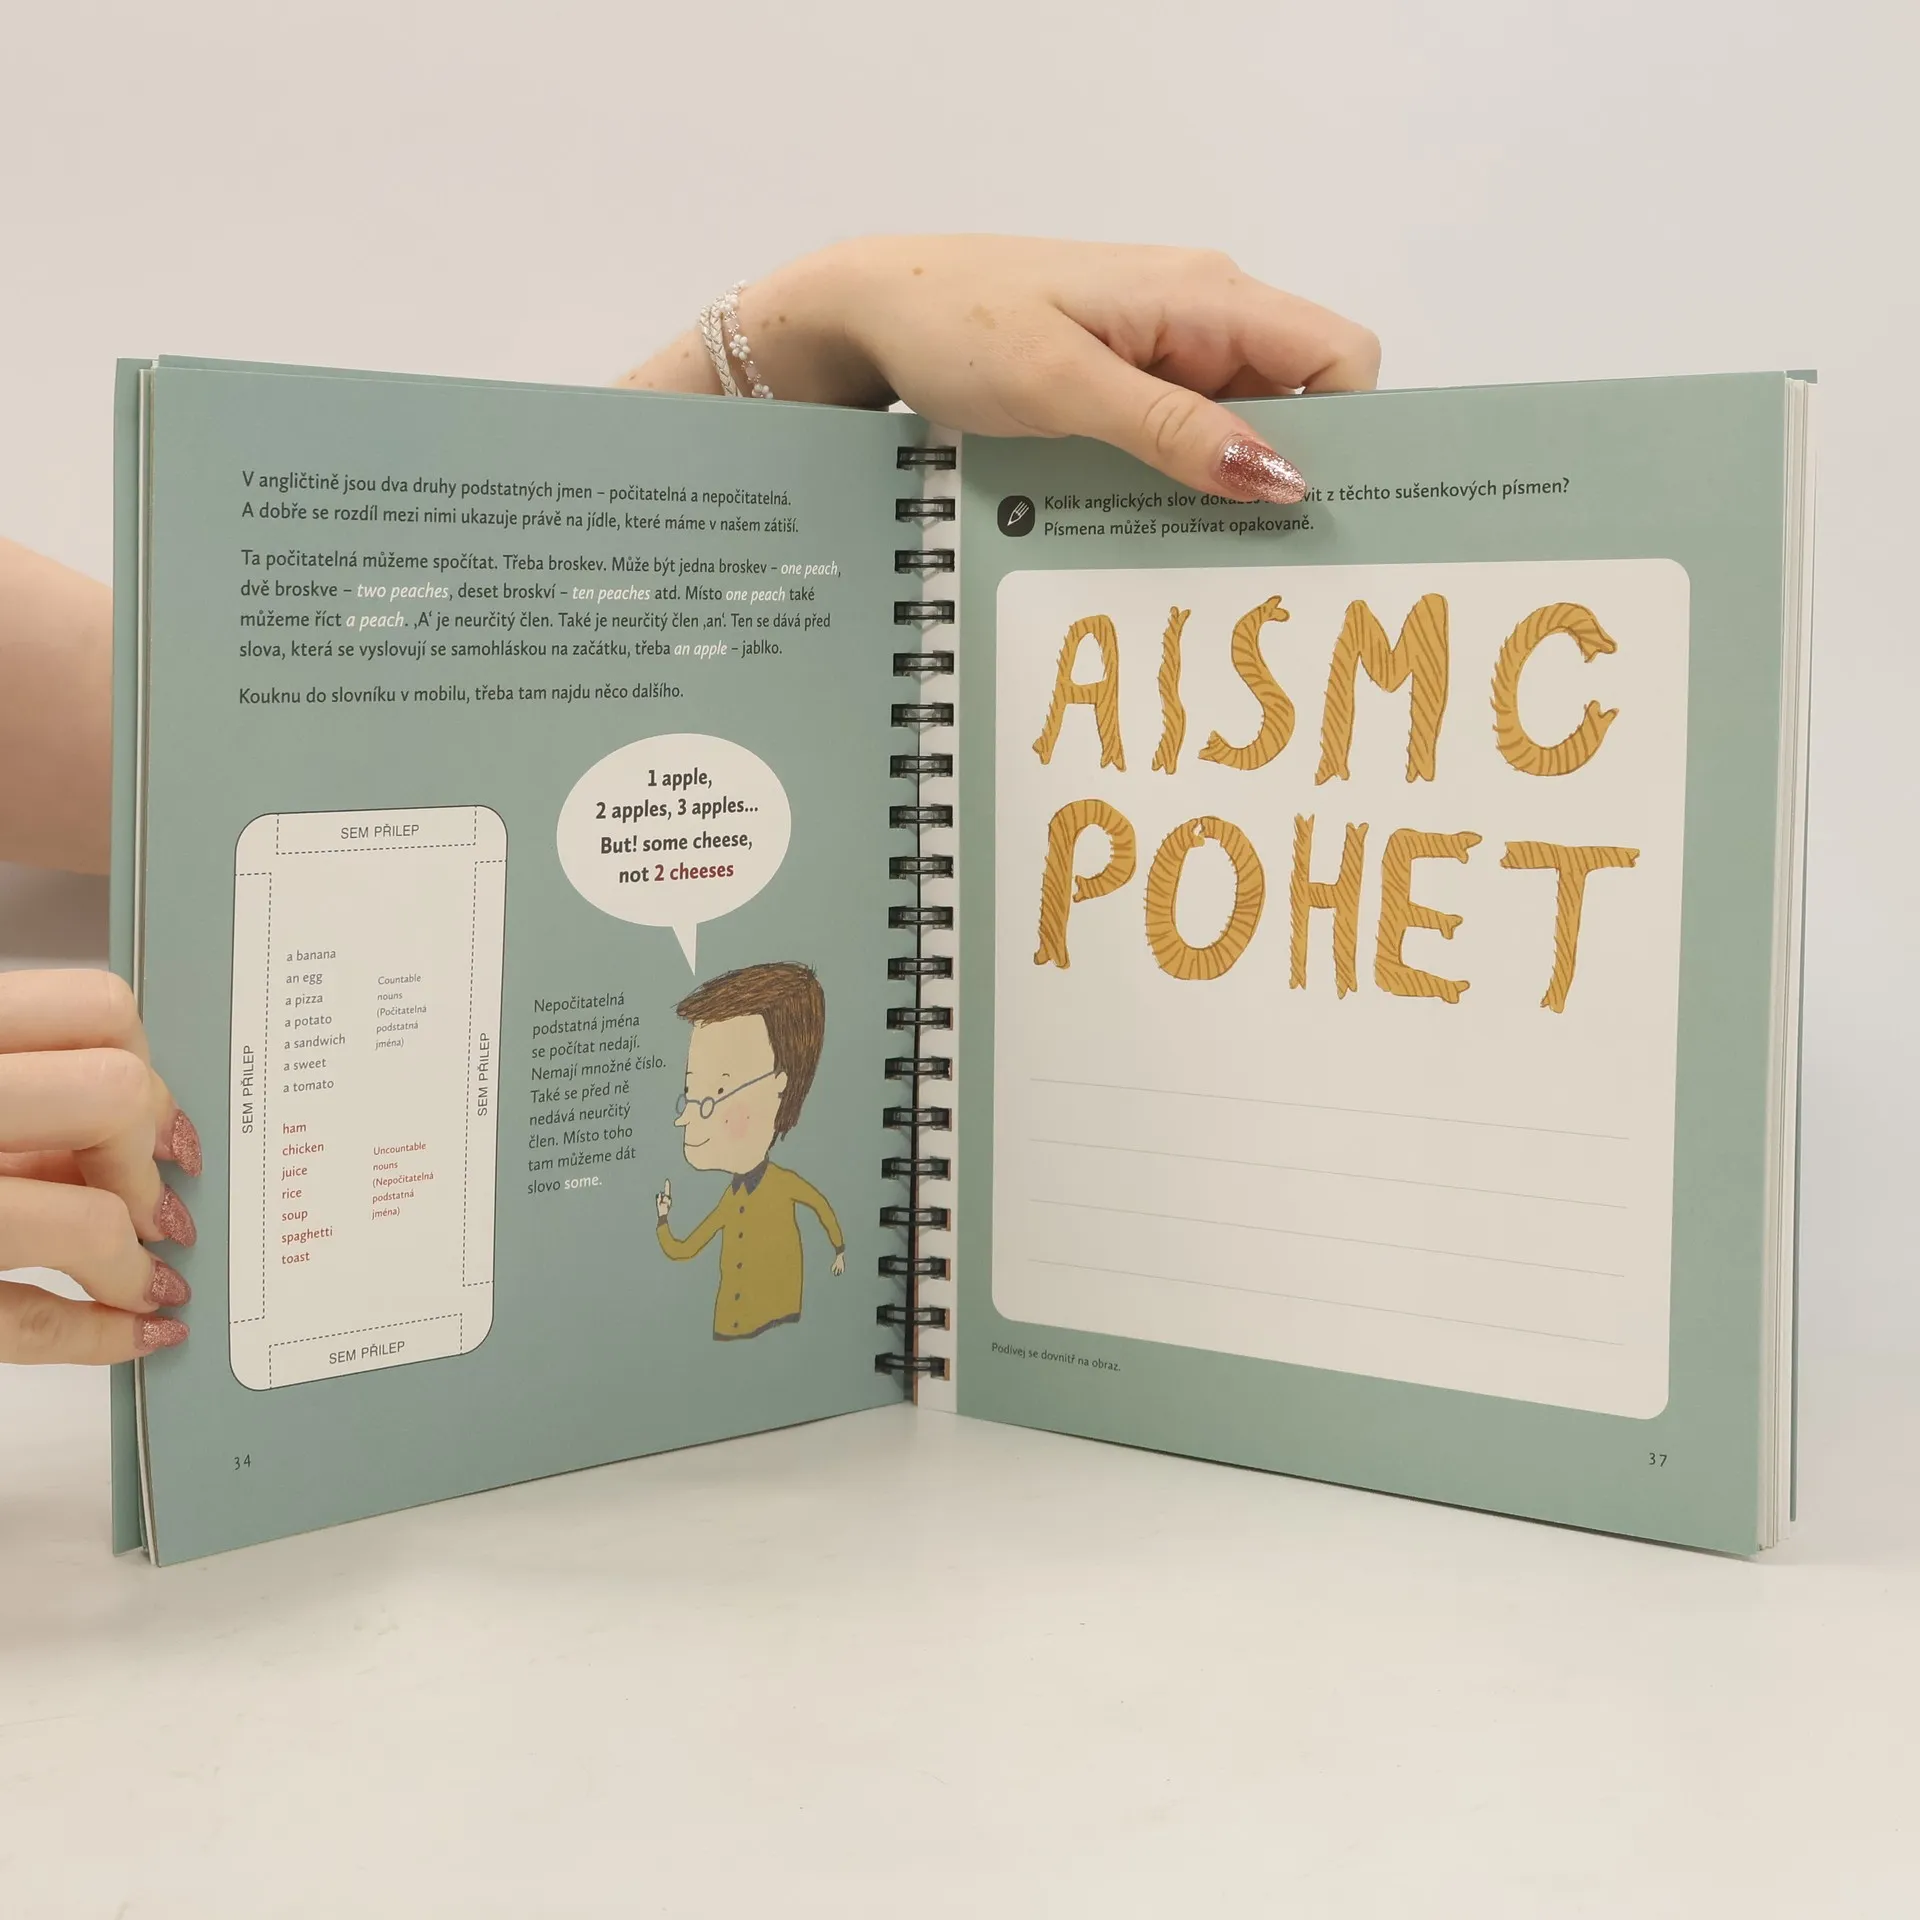 V angličtině jsou dva druhy podstatných jmen – počitatelná a nepočitatelná.
A dobře se rozdíl mezi nimi ukazuje právě na jídle, které máme v našem zátiší.
Ta počitatelná můžeme spočítat. Třeba broskev. Může být jedna broskev – one peach,
dvě broskve – two peaches, deset broskví – ten peaches atd. Místo one peach také
můžeme říct a peach. ‚A‘ je neurčitý člen. Také je neurčitý člen ‚an‘. Ten se dává před
slova, která se vyslovují se samohláskou na začátku, třeba an apple – jablko.
Kouknu do slovníku v mobilu, třeba tam najdu něco dalšího.
1 apple,
2 apples, 3 apples...
But! some cheese,
not 2 cheeses
SEM PŘILEP
SEM PŘILEP
a banana
an egg
a pizza
a potato
a sandwich
a sweet
a tomato
Countable
nouns
(Počitatelná
podstatná
jména)
ham
chicken
juice
rice
soup
spaghetti
toast
Uncountable
nouns
(Nepočitatelná
podstatná
jména)
SEM PŘILEP
SEM PŘILEP
Nepočitatelná
podstatná jména
se počítat nedají.
Nemají množné číslo.
Také se před ně
nedává neurčitý
člen. Místo toho
tam můžeme dát
slovo some.
34
Kolik anglických slov z těchto sušenkových písmen?
Písmena můžeš používat opakovaně.
AISMC
POHET
Podívej se dovnitř na obraz.
37